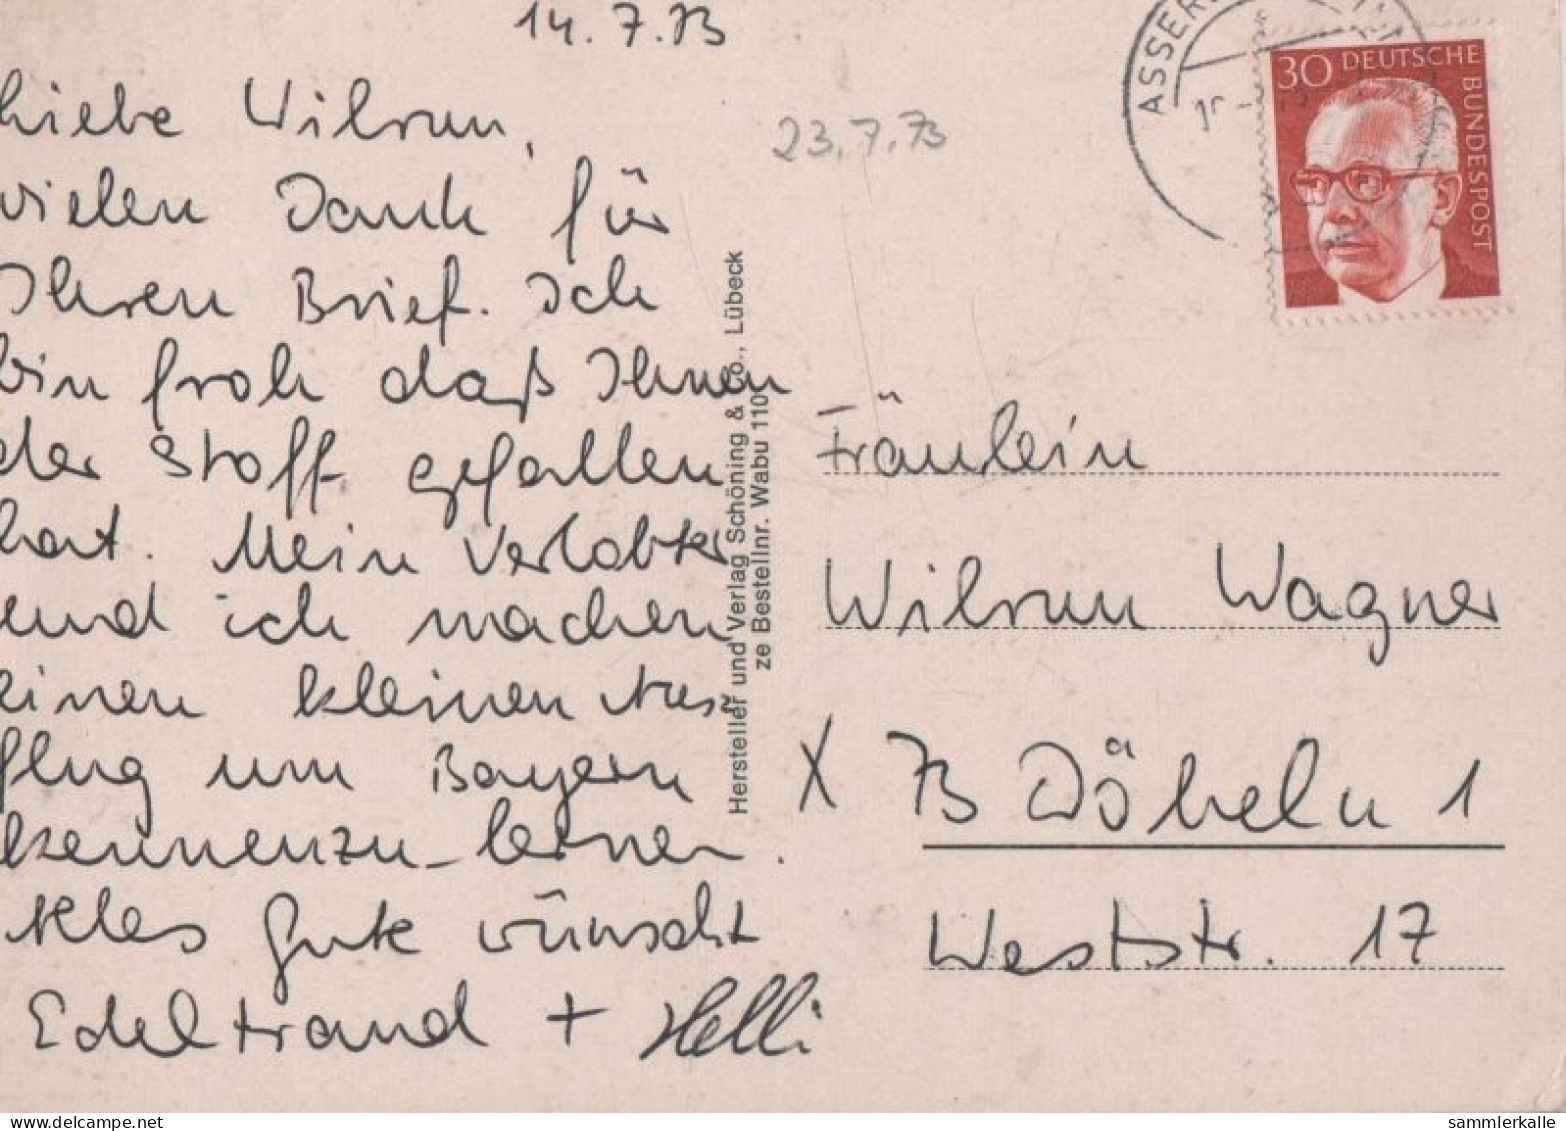 14.7.73
Liebe Wilrun,
vielen Dank für
Ihren Brief. Ich
bin froh daß Ihnen
der Stoff gefallen
hat. Mein Verlobter
und ich machen
einen kleinen Aus=
flug um Bayern
kennenzu-lernen.
Alles Gute wünscht
Edeltraud + Helli
23.7.73
Hersteller und Verlag Schöning & Co., Lübeck
ze Bestellnr. Wabu 110
30 DEUTSCHE BUNDESPOST
Fräulein
Wilrun Wagner
X 73 Döbeln 1
Weststr. 17
delcampe.net
sammlerkalle